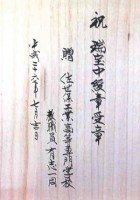 祝 瑞宝中綬章受章
贈 佐世保工業高等専門学校
教職員有志一同
平成二十六年七月吉日